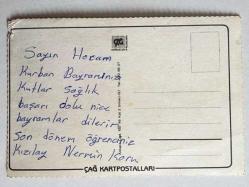 Sayın Hocam
Kurban Bayramınızı
Kutlar sağlık
başarı dolu nice
bayramlar dilerim
Son dönem öğrenciniz
Kızılay Nermin Koru
ÇAĞ KARTPOSTALLARI